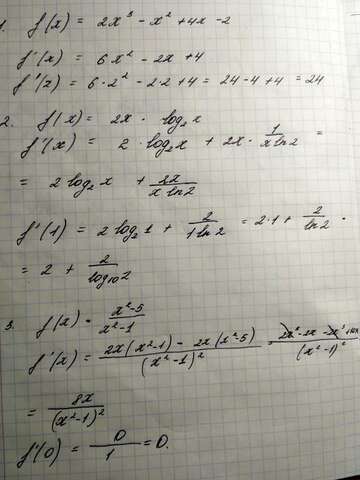 1. f(x) = 2x³ - x² + 4x - 2
f'(x) = 6x² - 2x + 4
f'(2) = 6·2² - 2·2 + 4 = 24 - 4 + 4 = 24
2. f(x) = 2x · log₂x
f'(x) = 2 · log₂x + 2x · 1/(x ln2) =
= 2 log₂x + 2x/(x ln2)
f'(1) = 2 log₂1 + 2/(1 ln2) = 2·1 + 2/ln2 .
= 2 + 2/log₁₀2
3. f(x) = (x²-5)/(x²-1)
f'(x) = (2x(x²-1) - 2x(x²-5))/(x²-1)² = (2x³ - 2x - 2x³ + 10x)/(x²-1)²
= 8x/(x²-1)²
f'(0) = 0/1 = 0.